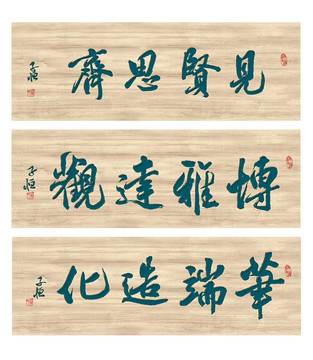 見賢思齊
子恒
博雅達觀
子恒
華端造化
子恒